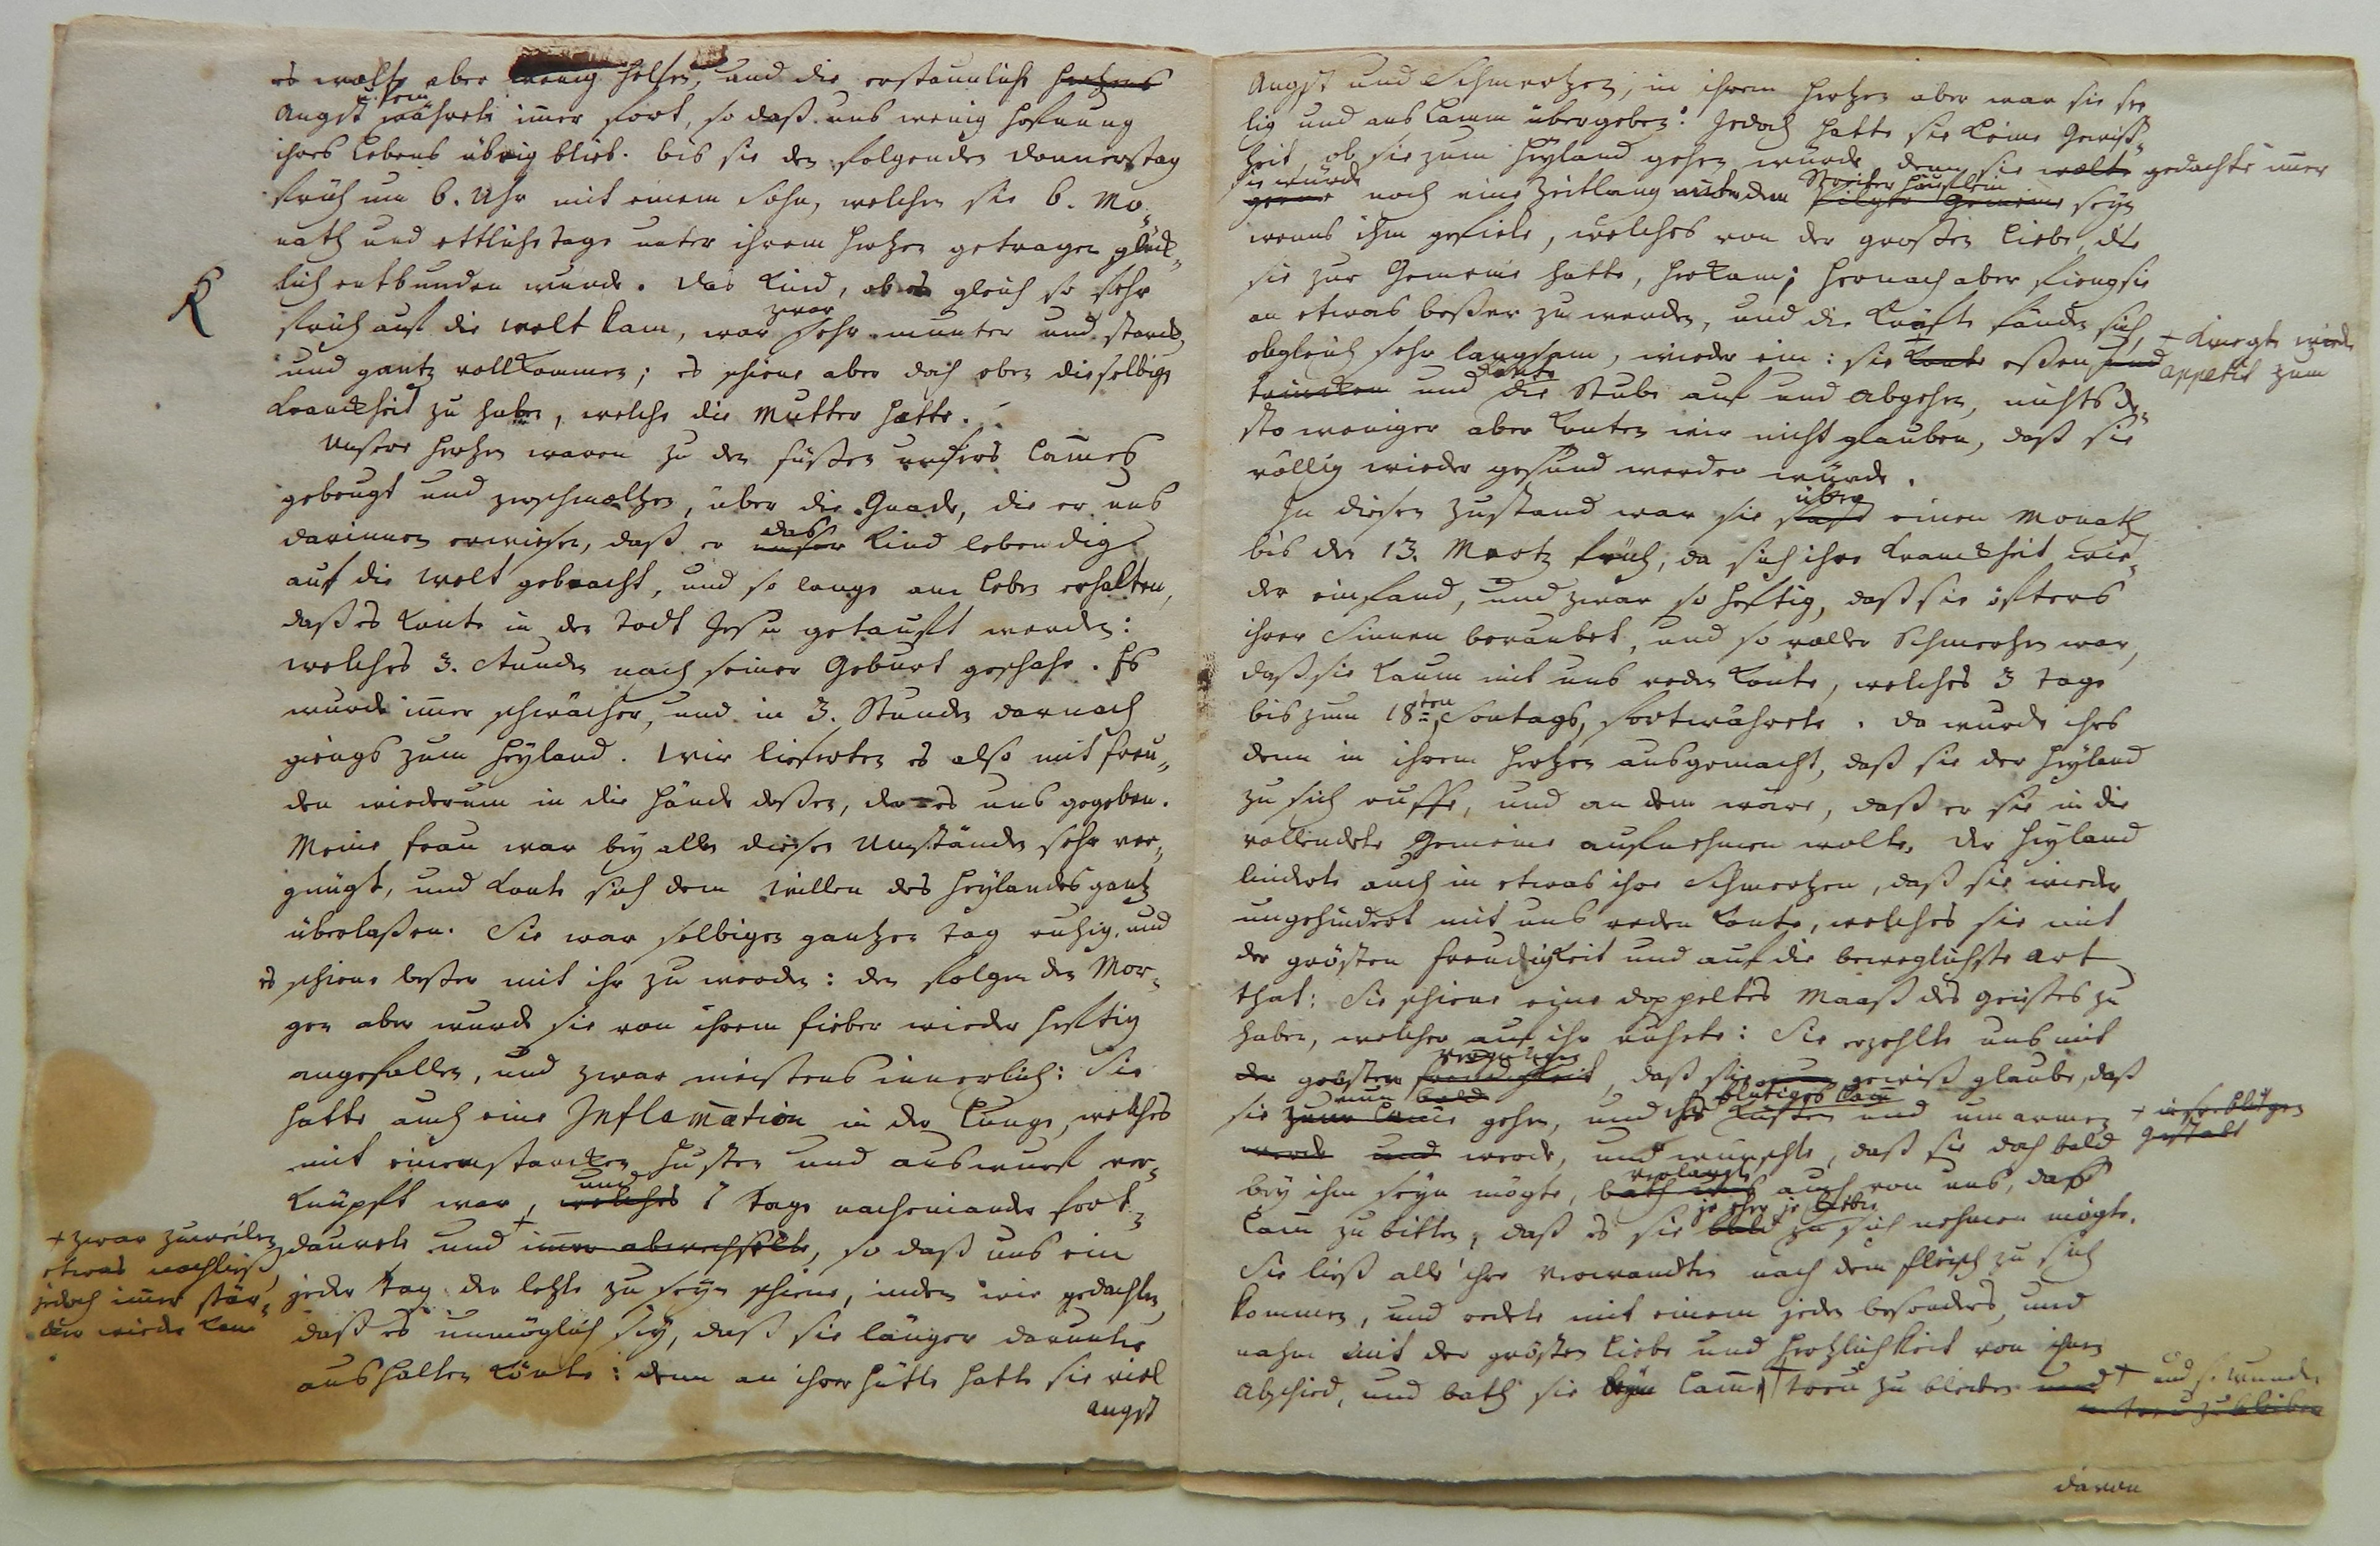 es wolte aber wenig helfen, und die erstaunliche Hertzens
u. Pein
Angst währete im̅er fort, so daß uns wenig Hofnung
ihres Lebens übrig blieb. bis sie den folgenden Donnerstag
früh um 6. Uhr mit einem Sohn, welchen sie 6. Mo-
nath und ettliche Tage unter ihrem Hertzen getragen glück-
lich entbunden wurde. Das Kind, ob es gleich so sehr
zwar
früh auf die Welt kam, war sehr munter und starck,
und gantz vollkommen; es schiene aber doch eben dieselbige
Kranckheit zu haben, welche die Mutter hatte.
Unsere Hertzen waren zu den Füßen unsers Lam̅es
gebeugt und zerschmoltzen, über die Gnade, die er uns
das
darinnen erwiesen, daß er unser Kind lebendig
auf die Welt gebracht, und so lange am Leben erhalten,
daß es konte in den Todt Jesu getauft werden:
welches 3. Stunden nach seiner Geburt geschahe. Es
wurde im̅er schwächer, und in 3. Stunden darnach
giengs zum Heyland. Wir lieferten es also mit Freu-
den wiederum in die Hände deßen, der es uns gegeben.
Meine Frau war bey allen diesen Umständen sehr ver-
gnügt, und konte sich dem Willen des Heylandes gantz
überlaßen. Sie war selbigen gantzen Tag ruhig, und
es schiene beßer mit ihr zu werden: den folgenden Mor-
gen aber wurde sie von ihrem Fieber wieder heftig
angefallen, und zwar meistens innerlich: Sie
hatte auch eine Inflam̅ation in der Lunge, welches
mit einem starcken Husten und auswurf ver-
und
knüpft war, welches 8 Tage nacheinander fort-
daurete und + im̅er abwechselte, so daß uns ein
jeder Tag der letzte zu seyn schiene, indem wir gedachten,
daß es unmöglich sey, daß sie länger darunter
aushalten könte: denn an ihrer Hütte hatte sie viel
Angst
+ zwar zuweilen
etwas nachließ,
jedoch im̅er stär-
cker wieder kam
Angst und Schmertzen, in ihrem Hertzen aber war sie see-
lig und ans Lamm übergeben: Jedoch hatte sie keine Gewiß-
heit, ob sie zum Heyland gehen würde, denn sie wolte gedachte im̅er
sie würde
Streiter Häuflein
gerne noch eine Zeitlang unter dem Pilger Gemeine seyn
wenns ihm gefiele, welches von der großen Liebe, die
sie zur Gemeine hatte, herkam; hernach aber fieng sie
an etwas beßer zu werden, und die Kräfte fanden sich,
obgleich sehr langsam, wieder ein: sie + konte eßen und
konte
trincken und die Stube auf und Abgehen, nichts de-
sto weniger aber konten wir nicht glauben, daß sie
völlig wieder gesund werden würde.
+ kriegte wieder
appetit zum
über
In diesen Zustand war sie fast einen Monath
bis den 13. Mertz früh, da sich ihre Kranckheit wie-
der einfand, und zwar so heftig, daß sie öfters
ihrer Sinnen beraubet, und so voller Schmertzen war,
daß sie kaum mit uns reden konte, welches 3 Tage
bis zum 18ten, Sontags, fortwährete. Da wurde ihrs
denn in ihrem Hertzen ausgemacht, daß sie der Heyland
zu sich ruffe, und an dem wäre, daß er sie in die
vollendete Gemeine aufnehmen wolte. Der Heyland
linderte auch in etwas ihre Schmertzen, daß sie wieder
ungehindert mit uns reden konte, welches sie mit
der grösten Freudigkeit und auf die beweglichste Art
that: Sie schiene eine doppeltes Maaß des Geistes zu
haben, welcher auf ihr ruhete: Sie erzehlte uns mit
Vergnügen
der grösten Freudigkeit, daß sie nun gewiß glaube, daß
nun bald
blutiges Lam̅
sie zum Lam̅e gehen, und ihr + küßen und umarmen
werde und werde, und wünschte, daß sie doch bald
+ in sr. blutgen
Gestalt
verlangte
bey ihm seyn mögte, bath uns auch von uns, daß
je eher je lieber
Lam̅ zu bitten, daß es sie bald zu sich nehmen mögte.
Sie ließ alle ihre Verwandten nach dem Fleisch zu sich
kommen, und redete mit einem jeden besonders, und
nahm mit der grösten Liebe und Hertzlichkeit von ihnen
Abschied, und bath sie beym Lam̅ + treu zu bleiben und
+ und sr. Wunden
treu zu bleiben
davon